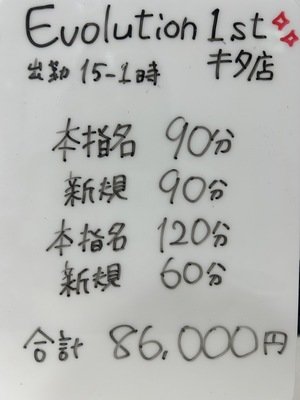 Evolution 1st
出勤 15-1時 キタ店
本指名 90分
新規 90分
本指名 120分
新規 60分
合計 86,000円